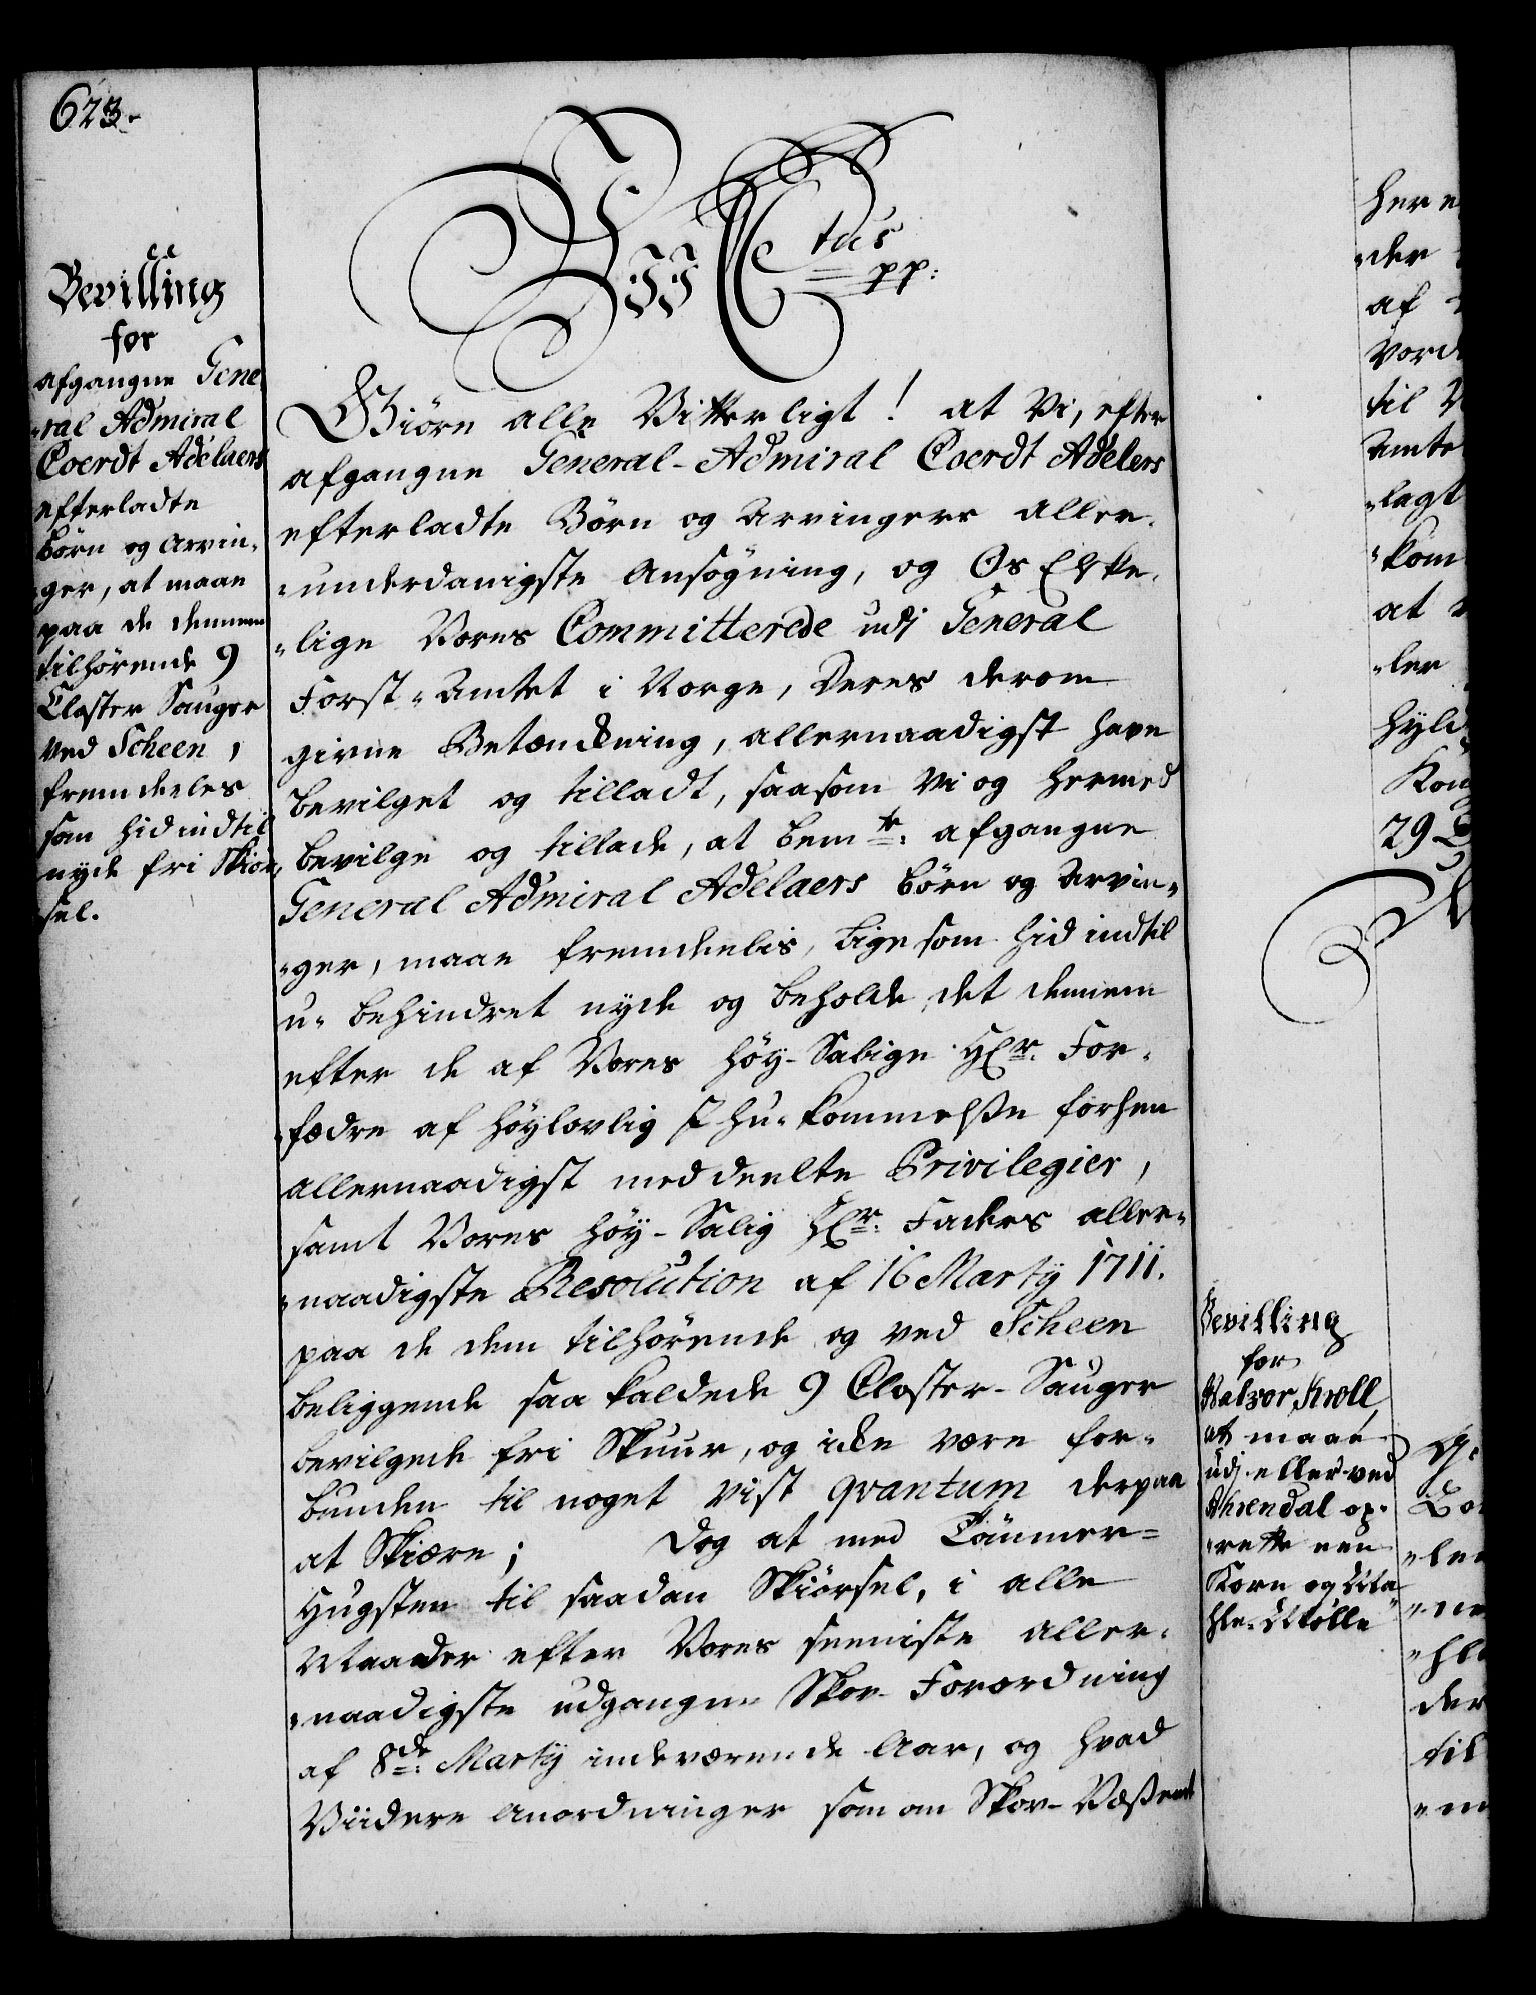 623.
Bevilling
for
afgangne Gene-
-ral Admiral
Coerdt Adelaers
efterladte
Børn og Arvin-
-ger, at maae
paa de dennem
tilhørende 9
Closter Sauger
ved Scheen,
fremdeeles
som hid indtil
nyde fri Skiør-
sel.
Vii C tus
pp:
Giöre alle Vitterligt! at Vi, efter
afgangne General-Admiral Coerdt Adelers
efterladte Børn og Arvingers aller-
-underdanigste Ansøgning, og Os Elske-
-lige Vores Committerede udj General
Forst-Amtet i Norge, Deres derom
givne Betænckning, allernaadigst have
bevilget og tilladt, saasom Vi og hermed
bevilge og tillade, at bemte: afgangne
General Admiral Adelaers børn og Arvin-
-ger, maae fremdeelis, lige som hid indtil
u-behindret nyde og beholde det dennem
efter de af Vores høy-Salige Hr. For-
-fædre af høylovlig Ihu-kommelse forhen
allernaadigst meddeelte Privilegier,
samt Vores høy-Salig Hr. Faders aller-
-naadigste Resolution af 16 Martij 1711.
paa de dem tilhørende og ved Scheen
beliggende saa kaldede 9 Closter-Sauger
bevilgede fri Skuur, og icke være for-
bunden til noget vist qvantum derpaa
at Skiære; Dog at med Tømmer-
Hugsten til saadan Skiørsel, i alle
Maader efter Vores seeniste aller-
-naadigste udgangne Skov-Forordning
af 8de: Martij indeværende Aar, og hvad
Viidere Anordninger som om Skov-Væsenet
her e
-der
af
Vord
til V
Amte
-lagt
-kom
at
-ler
hyld
Kong
29
Bevilling
for
Halvor Kroll
at maae
udj eller ved
Ahrendal op-
-rette een
Korn og Ma-
hle-Mølle
-lee
-ne
-hle
der
til